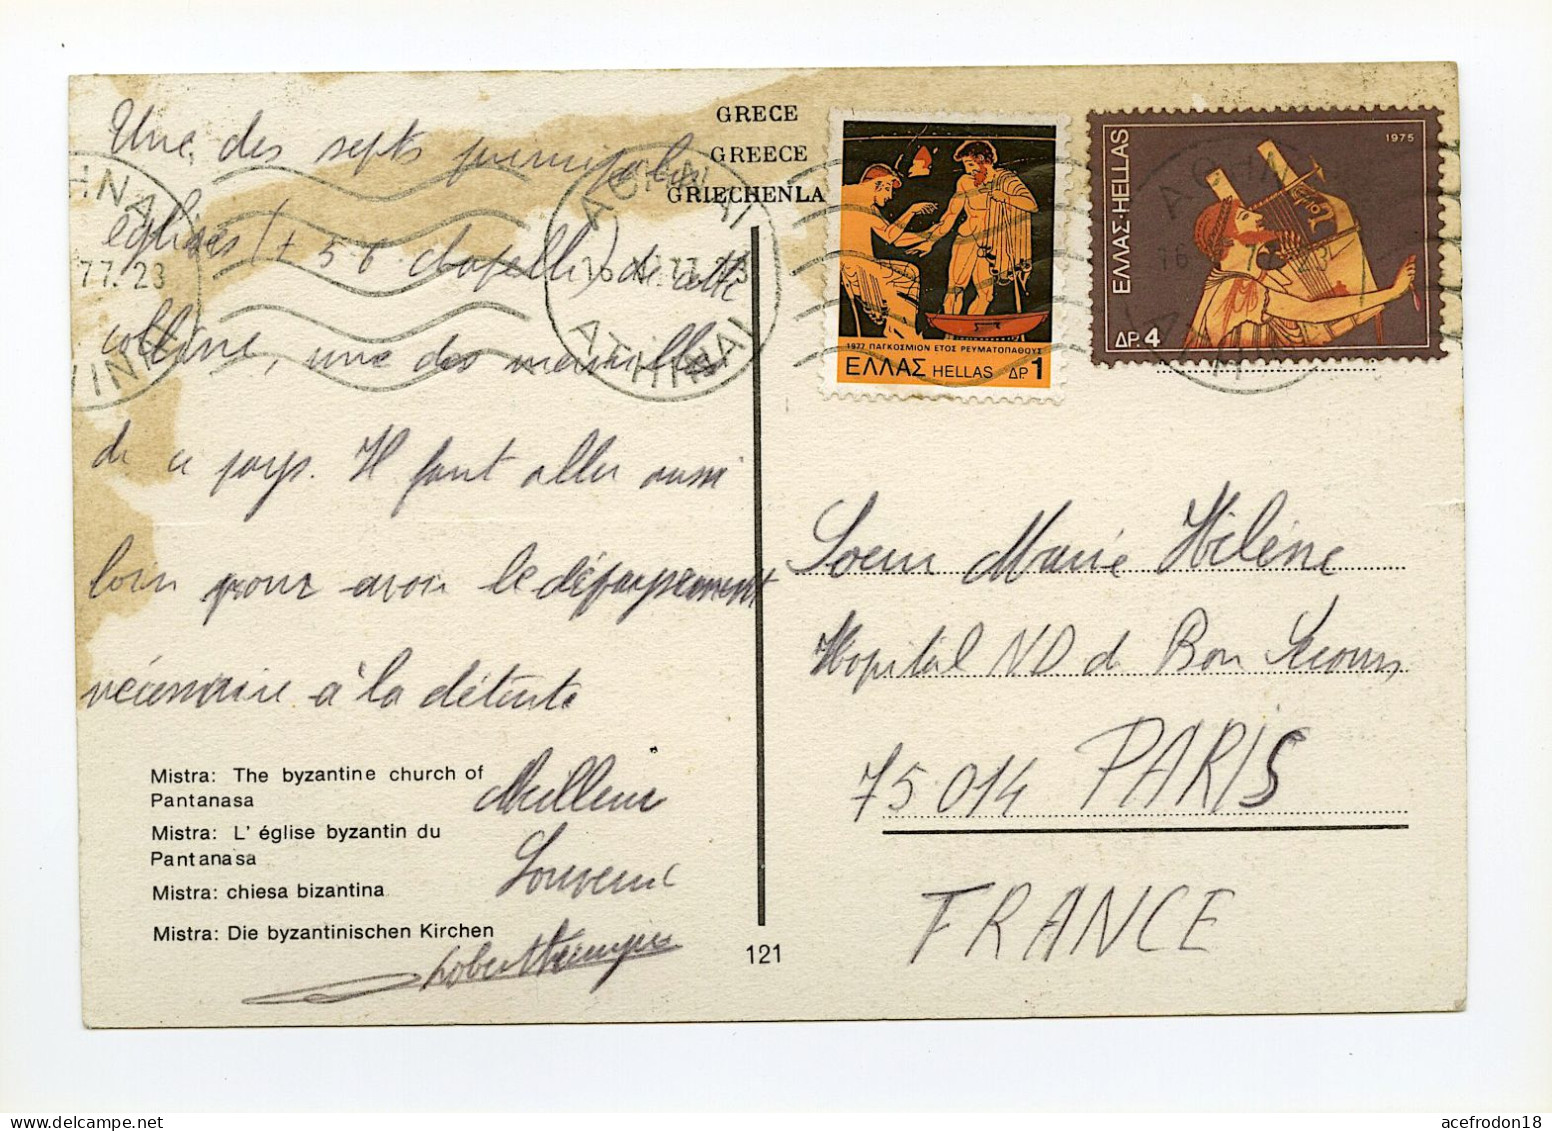 Une des septs principales
églises (+ 56 chapelles) de cette
colline, une des merveilles
de ce pays. Il faut aller aussi
loin pour avoir le dépaysement
nécessaire à la détente
Meilleur
Souvenir
Mistra: The byzantine church of
Pantanasa
Mistra: L' église byzantin du
Pantanasa
Mistra: chiesa bizantina
Mistra: Die byzantinischen Kirchen
121
GRECE
GREECE
GRIECHENLA
1977 ΠΑΓΚΟΣΜΙΟΝ ΕΤΟΣ ΡΕΥΜΑΤΟΠΑΘΟΥΣ
ΕΛΛΑΣ HELLAS ΔΡ. 1
1975
ΕΛΛΑΣ-HELLAS
ΔΡ. 4
ΑΘΗΝΑΙ
ATHINAI
77.23
Soeur Marie Hélène
Hopital ND d Bon Secours
75014 PARIS
FRANCE
acefrodon18